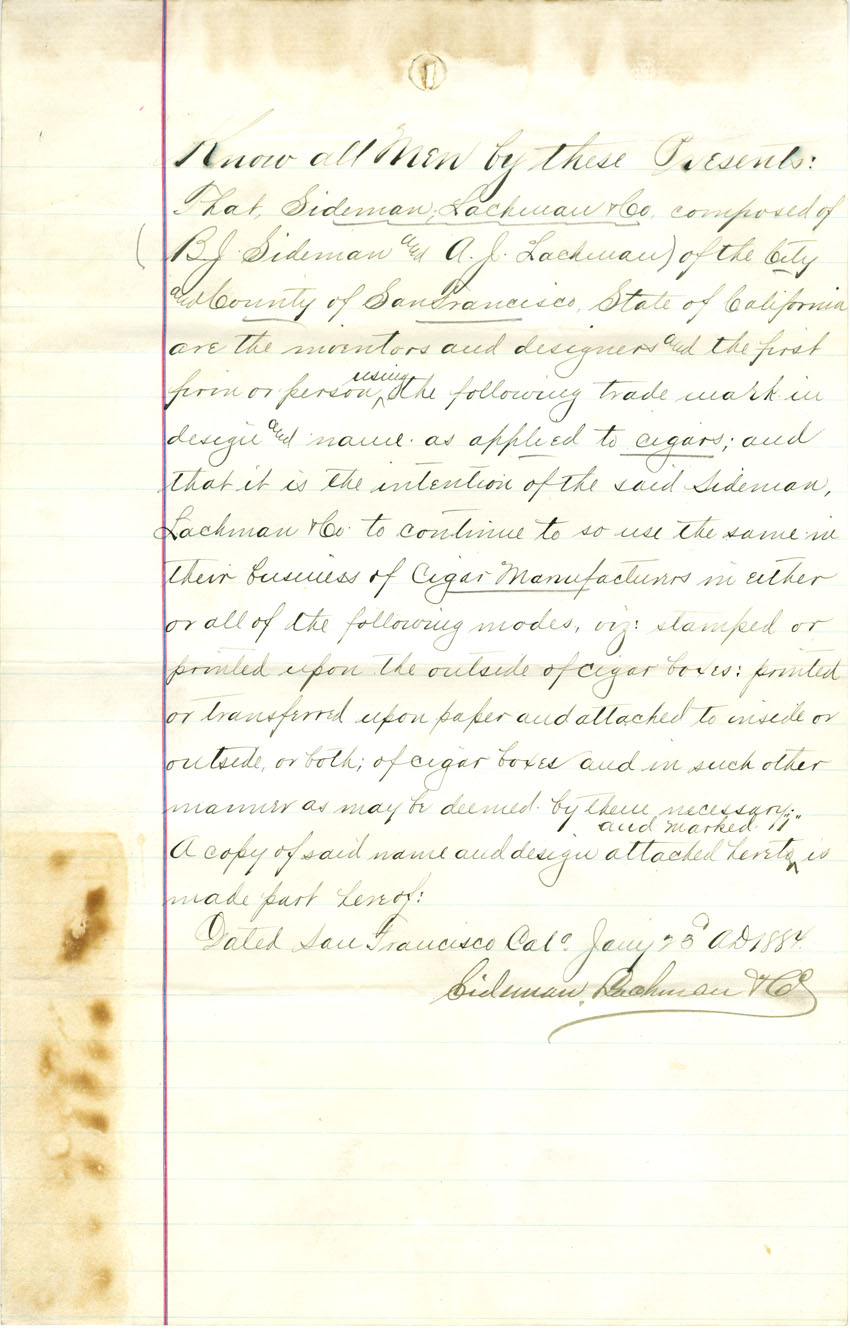 Know all Men by these Presents:
That, Sideman, Lachman & Co. composed of
(B. J. Sideman and A. J. Lachman) of the City
and County of San Francisco, State of California
are the inventors and designers and the first
firm or person, using the following trade mark in
design and name as applied to cigars; and
that it is the intention of the said Sideman,
Lachman & Co. to continue to so use the same in
their business of Cigar Manufacturers in either
or all of the following modes, viz: stamped or
printed upon the outside of cigar boxes: printed
or transferred upon paper and attached to inside or
outside, or both; of cigar boxes and in such other
manner as may be deemed by them necessary;
A copy of said name and design attached hereto and marked is
made part hereof:
Dated San Francisco Calª. Jany 23d AD 1884.
Sideman, Lachman & Co